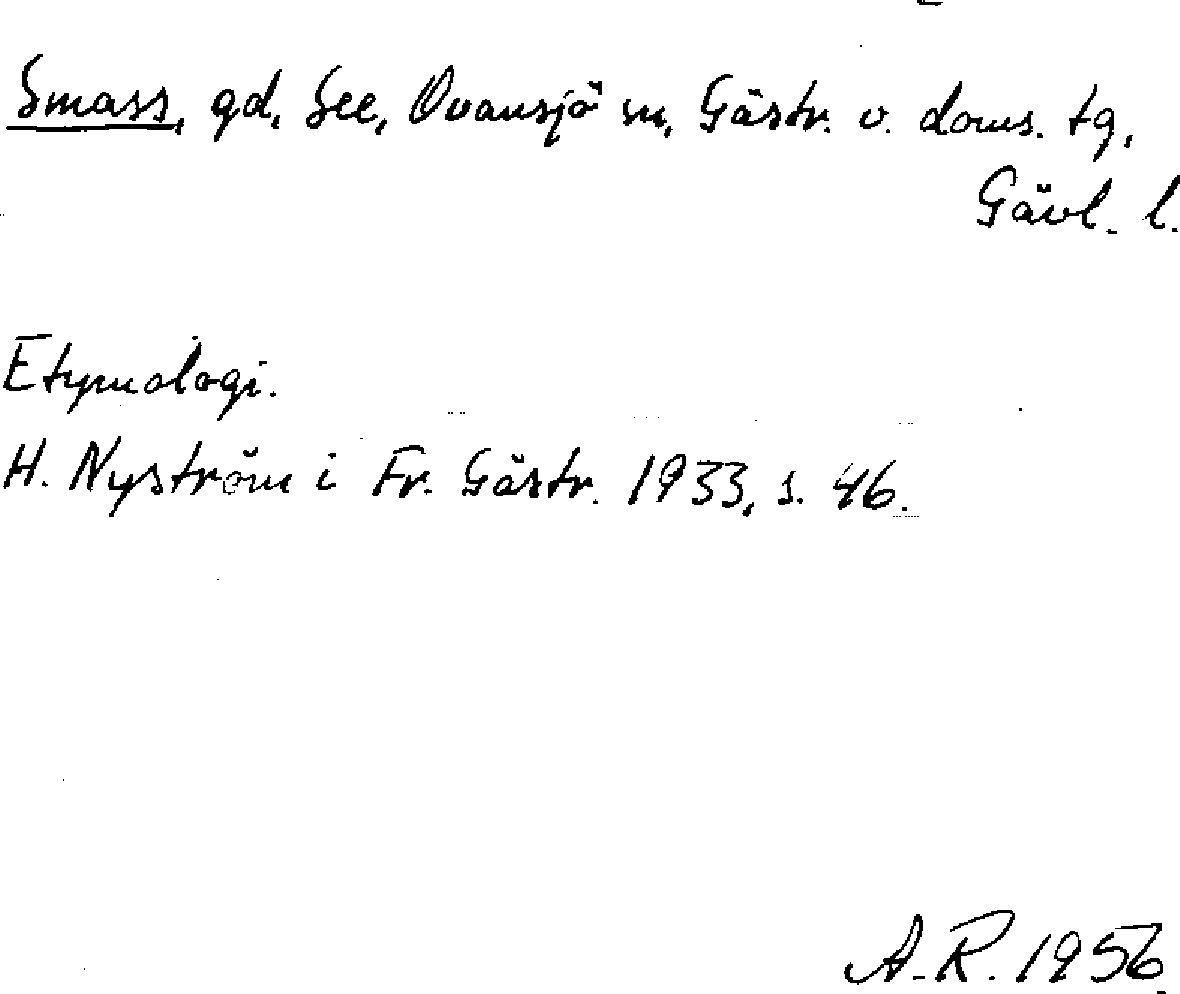 Smass, gd, See, Ovansjö sn, Gästr. v. doms. tg,
Gävl. l.
Etymologi.
H. Nyström i Fr. Gästr. 1933, s. 46.
A.R. 1956